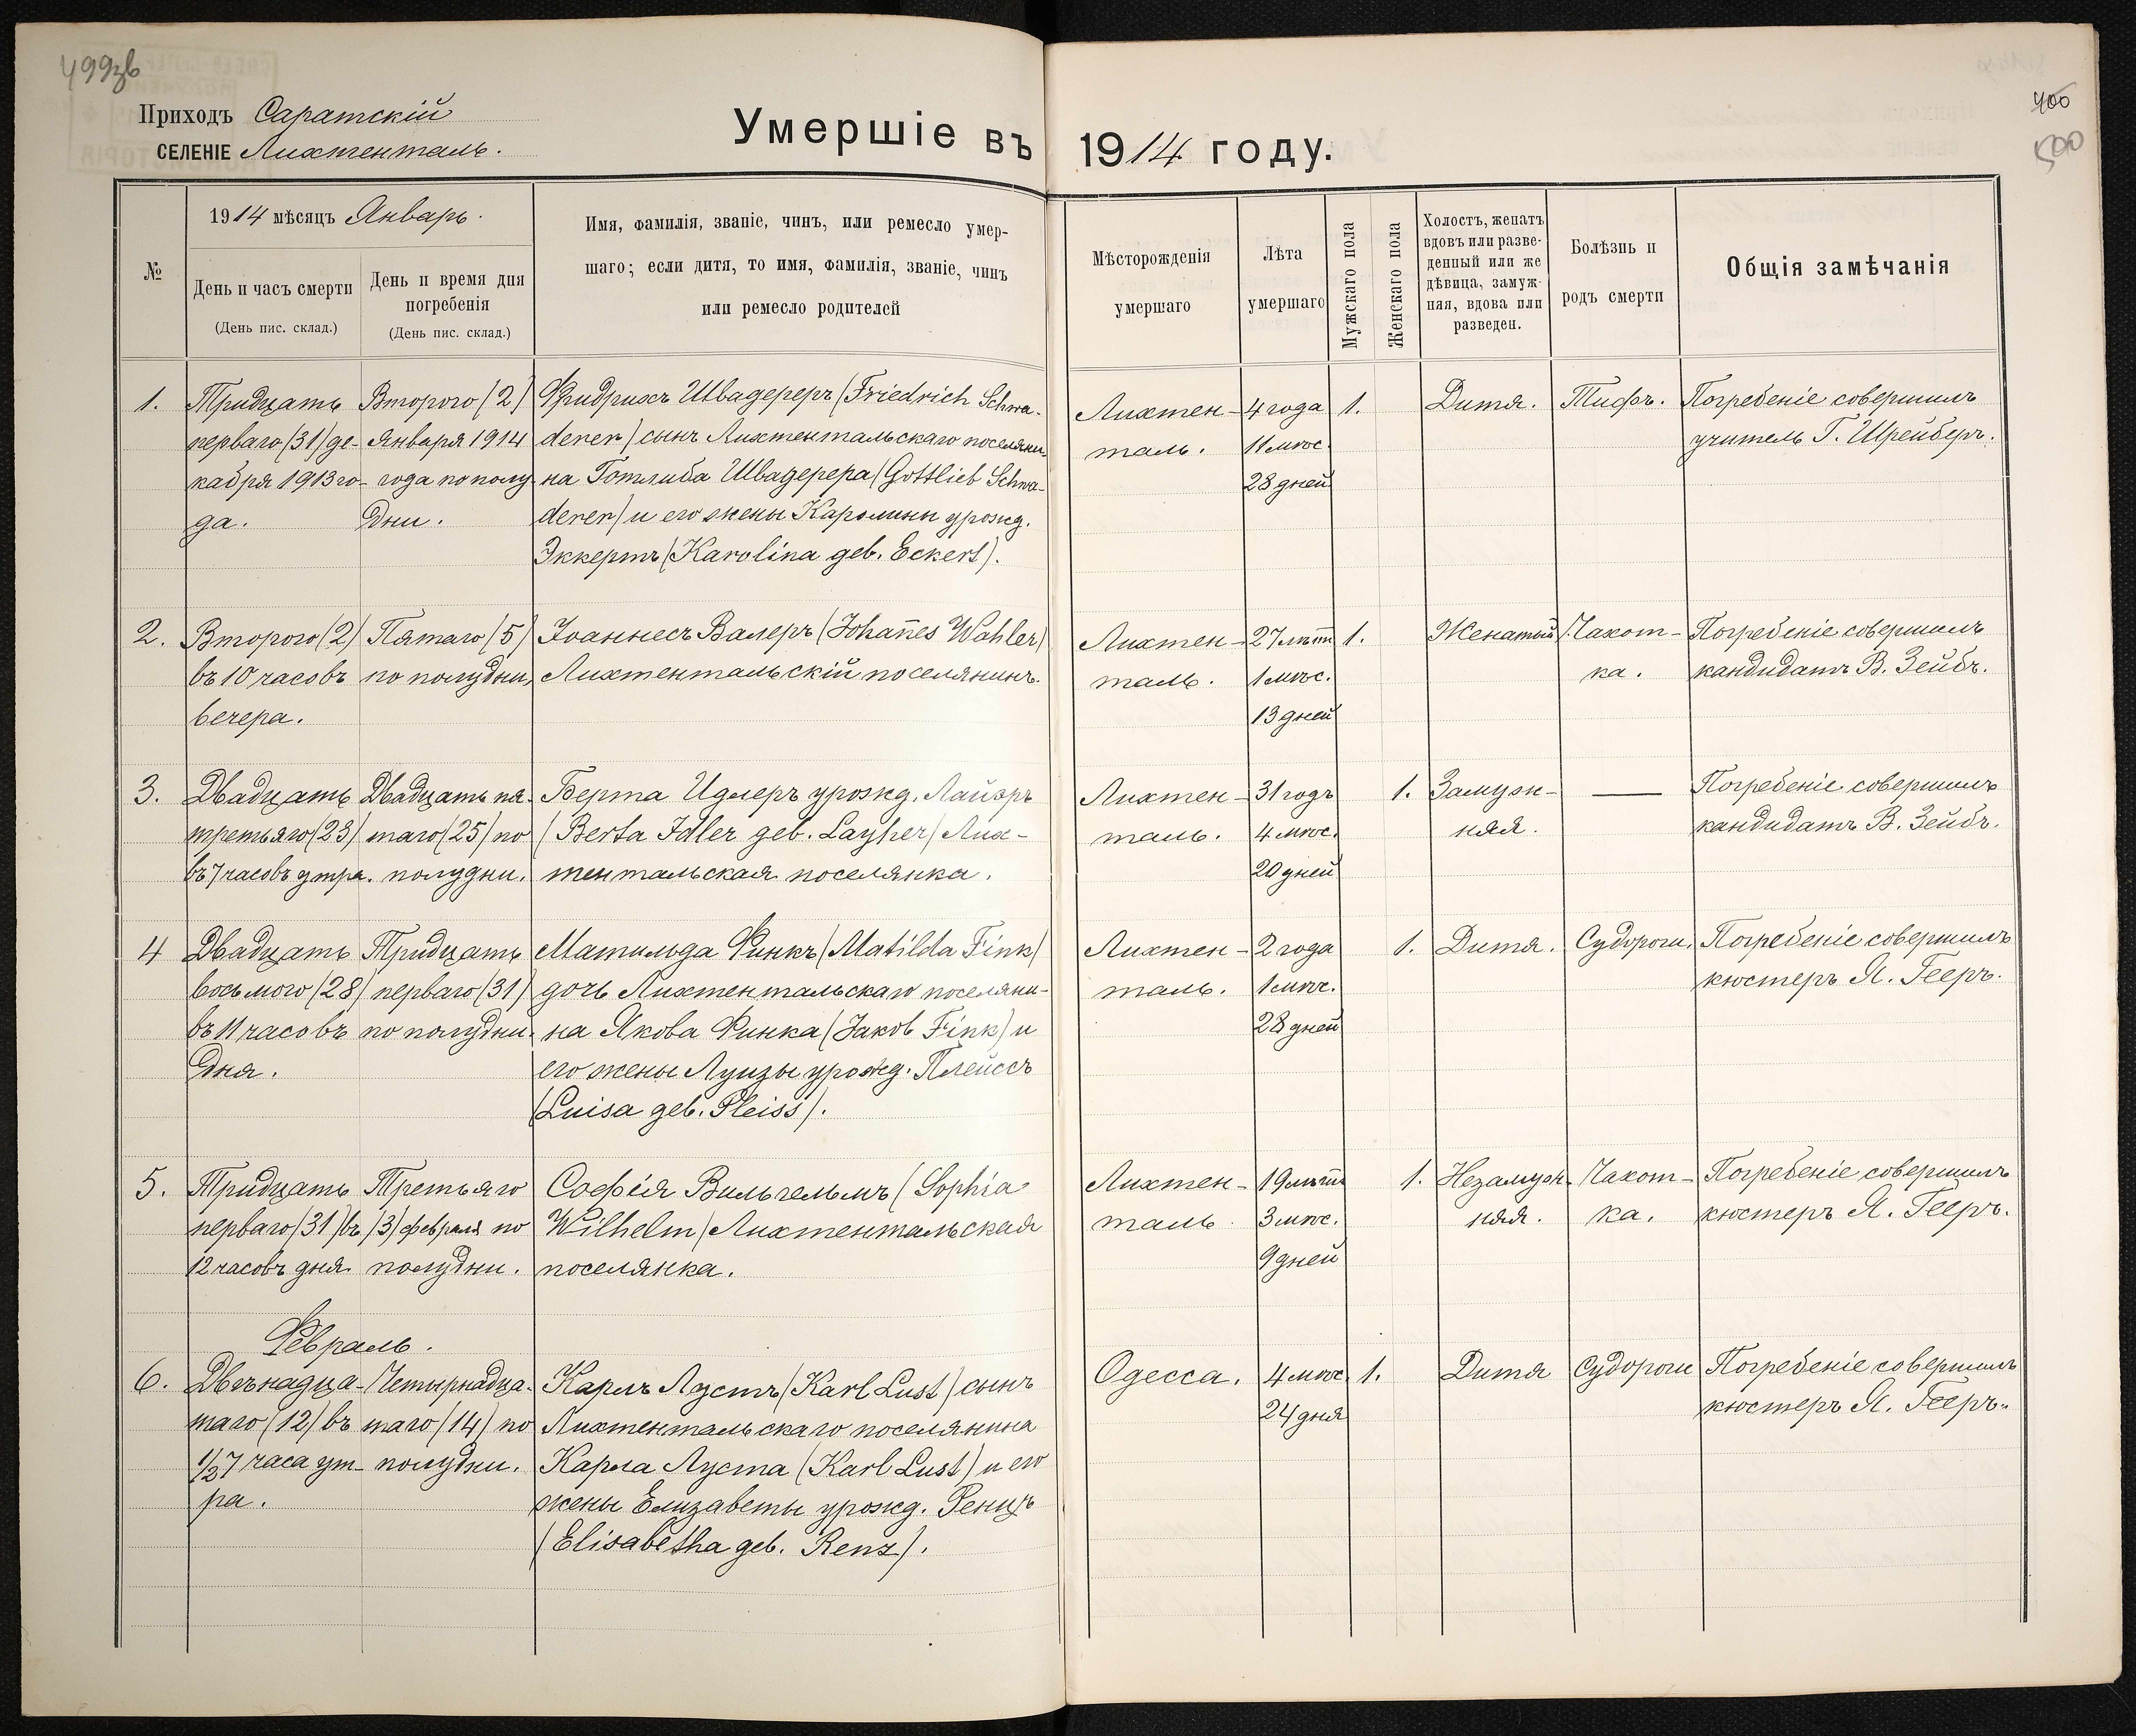 499зв
400
500
Приходъ Саратскій
СЕЛЕНІЕ Лихтенталь.
Умершіе въ 1914 году.
№
1914 мѣсяцъ Январь.
День и часъ смерти
(День пис. склад.)
День и время дня
погребенія
(День пис. склад.)
Имя, фамилія, званіе, чинъ, или ремесло умер-
шаго; если дитя, то имя, фамилія, званіе, чинъ
или ремесло родителей
Мѣсторожденія
умершаго
Лѣта
умершаго
Мужскаго пола
Женскаго пола
Холостъ, женатъ
вдовъ или разве-
денный или же
дѣвица, замуж-
няя, вдова или
разведен.
Болѣзнь и
родъ смерти
Общія замѣчанія
1.
Тридцать
перваго (31) де-
кабря 1913 го-
да.
Второго (2)
Января 1914
года по полу
дни.
Фридрихъ Швадереръ (Friedrich Schwa-
derer) сынъ Лихтентальскаго поселяни-
на Готлиба Швадерера (Gottlieb Schwa-
derer) и его жены Каролины урожд.
Эккертъ (Karolina geb. Eckert).
Лихтен-
таль.
4 года
11 мѣс.
28 дней
1.
Дитя.
Тифъ.
Погребеніе совершилъ
учитель Г. Шрейберъ.
2.
Второго (2)
въ 10 часовъ
вечера.
Пятаго (5)
по полудни,
Іоаннесъ Валеръ (Johan̄es Wahler)
Лихтентальскій поселянинъ.
Лихтен-
таль.
27 лѣтъ
1 мѣс.
13 дней
1.
Женатый
Чахот-
ка.
Погребеніе совершилъ
кандидатъ В. Зейбъ.
3.
Двадцать
третьяго (23)
въ 7 часовъ утра.
Двадцать пя-
таго (25) по
полудни.
Берта Идлеръ урожд. Лайэръ
(Berta Idler geb. Layher) Лих-
тентальская поселянка.
Лихтен-
таль.
31 годъ
4 мѣс.
20 дней
1.
Замуж-
няя.
—
Погребеніе совершилъ
кандидатъ В. Зейбъ.
4
Двадцать
восьмого (28)
въ 11 часовъ
дня.
Тридцать
перваго (31)
по полудни.
Матильда Финкъ (Matilda Fink)
дочь Лихтентальскаго поселяни-
на Якова Финка (Jakob Fink) и
его жены Луизы урожд. Плейссъ
(Luisa geb. Pleiss).
Лихтен-
таль.
2 года
1 мѣс.
28 дней
1.
Дитя.
Судороги.
Погребеніе совершилъ
кюстеръ Я. Гееръ.
5.
Тридцать
перваго (31) въ
12 часовъ дня.
Третьяго
(3) февраля по
полудни.
Софія Вильгельмъ (Sophia
Wilhelm) Лихтентальская
поселянка.
Лихтен-
таль
19 лѣтъ
3 мѣс.
9 дней
1.
Незамуж-
няя.
Чахот-
ка.
Погребеніе совершилъ
кюстеръ Я. Гееръ.
Февраль.
6.
Двѣнадца-
таго (12) въ
1/2 7 часа ут-
ра.
Четырнадца-
таго (14) по
полудни.
Карлъ Лустъ (Karl Lust) сынъ
Лихтентальскаго поселянина
Карла Луста (Karl Lust) и его
жены Елизаветы урожд. Ренцъ
(Elisabetha geb. Renz).
Одесса.
4 мѣс
24 дня
1.
Дитя
Судороги
Погребеніе совершилъ
кюстеръ Я. Гееръ.